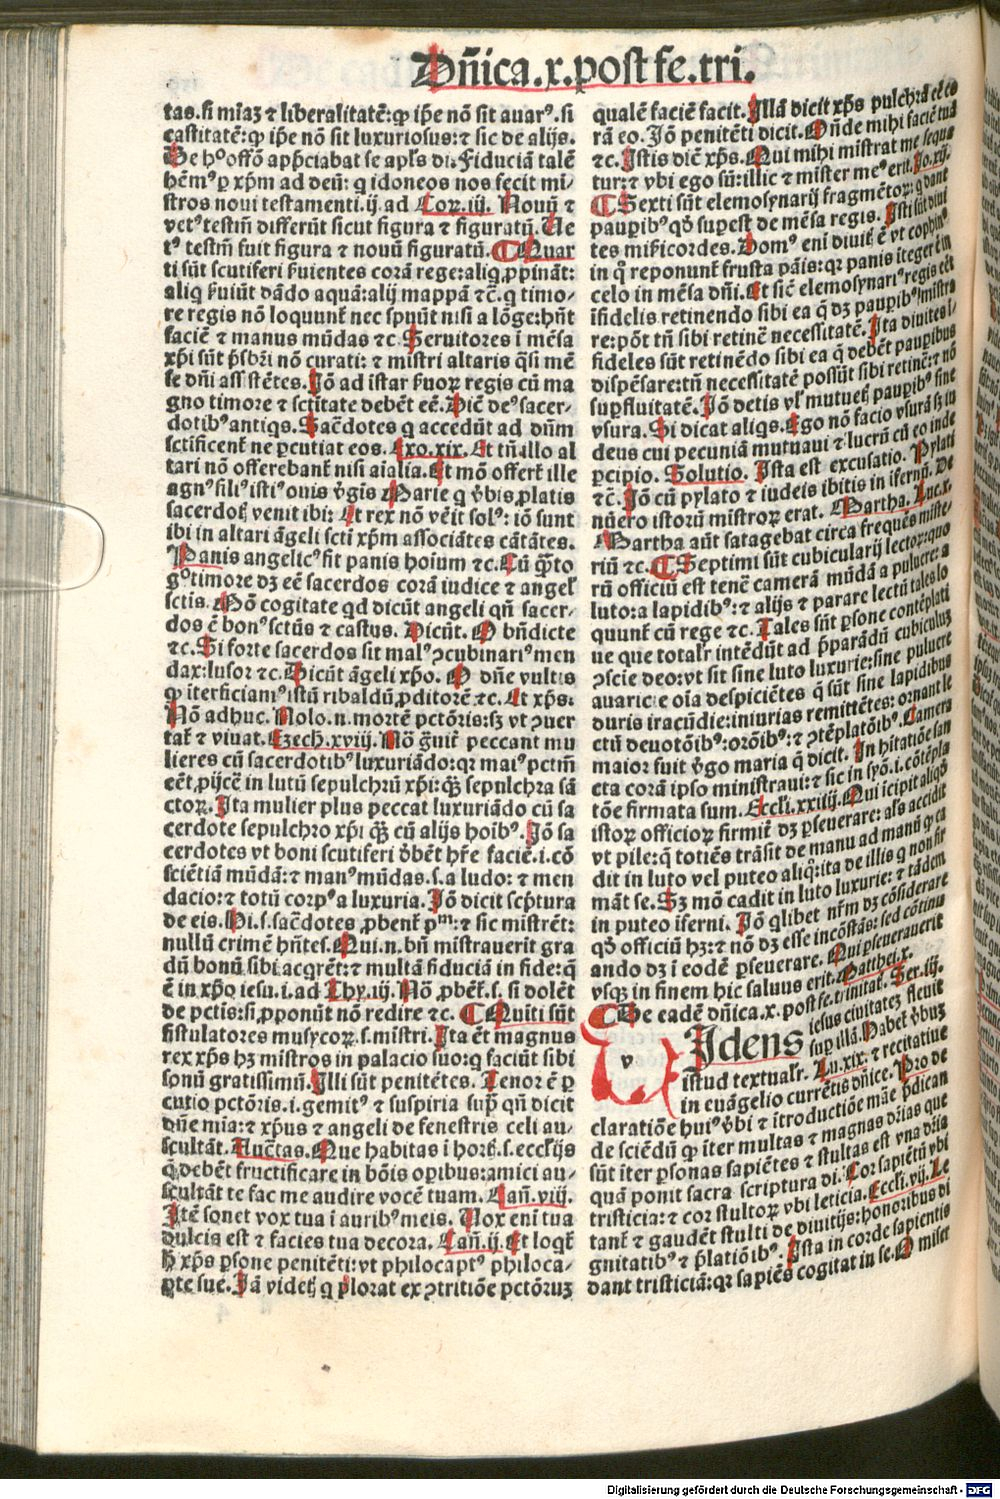 Dñica.x.post fe.tri.
tas.si mĩaʒ ⁊ liberalitatē:ꝙ ip̄e nõ sit auarꝰ.si
castitatē:ꝙ ip̄e nõ sit luxuriosus:⁊ sic de alijs.
De hºoffõ app̄ciabat se apl̃s di. Fiduciã talē
hēmꝰ ꝑ xp̄m ad deũ: q idoneos nos fecit mi/
stros noui testamenti.ij.ad Coꝝ.iij. Nouũ ⁊
vetꝰ testm̃ differũt sicut figura ⁊ figuratũ. Ue
tꝰ testm̃ fuit figura ⁊ nouũ figuratũ. ¶ Quar
ti sũt scutiferi ẜuientes corã rege:aliq ꝓpinãt:
aliq ẜuiũt dãdo aquã:alij mappã ⁊c̃.q timo/
re regis nõ loquunt̃ nec spuũt nisi a lõge:hñt
faciē ⁊ manus mũdas ⁊c. Seruitores ĩ mēsa
xp̄i sũt p̄sbr̃i nõ curati: ⁊ mistri altaris q̃si mē
se dñi assistētes. Jõ ad istar ẜuoꝝ regis cũ ma
gno timore ⁊ sctĩtate debēt eē. Dicē deꝰ sacer/
dotibꝰ antiqs. Sacēdotes q accedũt ad dũm
sctĩficent̃ ne ꝑcutiat eos. Exo.xix. Et tñ illo al
tari nõ offerebant̃ nisi aĩalia. Et mõ offert̃ ille
agnꝰ filiꝰ istiꝰ ouis v̉gis Marie q v̉bis ꝓlatis
sacerdot̃ venit ibi: Et rex nõ vēit solꝰ: iõ sunt
ibi in altari ãgeli scti xp̄m associãtes cãtãtes.
Panis angelicꝰ fit panis hoĩum ⁊c. Cũ q̃to
gº timore dʒ eē sacerdos corã iudice ⁊ angel̃
sctis. Mõ cogitate qd dicũt angeli qñ sacer/
dos ē bonꝰ sctũs ⁊ castus. Dicũt. O bñdicte
⁊c. Si forte sacerdos sit malꝰ ↄcubinariꝰ men
dax:lusor ⁊c. Dicũt ãgeli xp̄o. O dñe vultis
ꝙ ĩterficiamꝰ istũ ribaldũ ꝓditorē ⁊c. Et xp̄s:
Nõ adhuc. Nolo.n.mortē pctõris:sʒ vt ↄuer
tat̃ ⁊ viuat. Ezech.xviij. Nõ g̃uit̃ peccant mu
lieres cũ sacerdotibꝰ luxuriãdo:qꝛ maiꝰ pctm̃
eēt ꝓijcē in lutũ sepulchrũ xp̄i:q̃ʒ sepulchra sã
ctoꝝ. Ita mulier plus peccat luxuriãdo cũ sa
cerdote sepulchro xp̄i q̃ʒ cũ alijs hoĩbꝰ. Jõ sa
cerdotes vt boni scutiferi d̉bēt hr̃e faciē.i.cõ
sciētiã mũdã: ⁊ manꝰ mũdas.s.a ludo: ⁊ men
dacio:⁊ totũ corpꝰ a luxuria. Jõ dicit scp̄tura
de eis. Di.s.sacēdotes ꝓbent̃ pᵐ:⁊ sic mistrēt:
nullũ crimē hñtes. Qui.n.bñ mistrauerit gra
dũ bonũ sibi acqrēt:⁊ multã fiduciã in fide:q̃
ē in xp̄o iesu.i.ad Thy.iij. Nõ ꝓbēt̃.s.si dolēt
de pctis:si ꝓponũt nõ redire ⁊c. ¶ Quiti sũt
fistulatores musycoꝝ.s.mistri. Ita ēt magnus
rex xp̄s hʒ mistros in palacio suo:q faciũt sibi
sonũ gratissimũ. Illi sũt penitētes. Tenor ē ꝑ
cutio pctõris.i.gemitꝰ ⁊ suspiria sup̃ qñ dicit
dñe mĩa:⁊ xp̄us ⁊ angeli de fenestris celi au/
scultãt. Auc̃tas. Que habitas ĩ hort̃.s.eccl̃ijs
q̃ debēt fructificare in bõis oꝑibus:amici au/
scultãt te fac me audire vocē tuam. Cañ.viij.
Itē sonet vox tua ĩ auribꝰ meis. Vox enĩ tua
dulcis est ⁊ facies tua decora. Cañ.ij. Et loqt̃
h̉ xp̄s ꝑsone penitēti:vt philocaptꝰ philoca/
pte sue. Jã videt̃ q plorat ex ↄtritiõe pctõruʒ
qualē faciē facit. Illã dicit xp̄s pulchrã eē co
rã eo. Jõ penitēti dicit. Onde mihi faciē tuã
⁊c. Istis diē xp̄s. Qui mihi mistrat me sequa
tur:⁊ vbi ego sũ:illic ⁊ mister meꝰ erit. Jo.xij.
¶ Sexti sũt elemosynarij fragmētoꝝ: q dant
pauꝑibꝰ qd̉ suꝑest de mēsa regis. Isti sũt diui
tes miẜicordes. Domꝰ eni diuit̃ ē vt cophinꝰ
in q̃ reponunt̃ frusta pãis:qꝛ panis iteger ē in
celo in mēsa dñi. Et sicē elemosynariꝰ regis eēt
ĩfidelis retinendo sibi ea q̃ dʒ pauꝑibꝰ mĩstra
re:põt tñ sibi retinē necessitatē. Ita diuites i/
fideles sũt retinēdo sibi ea q̃ debēt pauꝑibus
dispēsare:tñ necessitatē possũt sibi retinē:⁊ nõ
suꝑfluitatē. Jõ detis vl̃ mutuet̃ pauꝑibꝰ sine
vsura. Si dicat aliqs. Ego nõ facio vsurã sʒ in
deus cui pecuniã mutuaui ⁊ lucrũ cũ eo inde
ꝑcipio. Solutio. Ista est excusatio. Pylati
⁊c̃. Jõ cũ pylato ⁊ iudeis ibitis in ifernũ. De
nũero istorũ mistroꝝ erat. Martha. Luc.x.
Martha aũt satagebat circa frequēs miste/
riũ ⁊c. ¶ Septimi sũt cubicularij lectoꝝ:quo
rũ officiũ est tenē camerã mũdã a puluere: a
luto:a lapidibꝰ:⁊ alijs ⁊ parare lectũ tales lo
quunt̃ cũ rege ⁊c. Tales sũt ꝑsone contēplati
ue que totalr̃ intēdũt ad p̄parãdũ cubiculuʒ
ↄscie deo:vt sit sine luto luxurie:sine puluere
auaricie oĩa despiciētes q̃ sũt sine lapidibus
duris iracũdie:iniurias remittētes: ornant le
ctũ deuotõibꝰ:orõibꝰ: ⁊ ↄtēplatõibꝰ. Camera
maior fuit v̉go maria q̃ dicit. In hĩtatiõe san
cta corã ipso ministraui:⁊ sic in syõ.i.cõtēpla
tõe firmata sum. Eccl̃i.xxiiij. Qui icipit aliqd̉
istoꝝ officioꝝ firmit̃ dʒ ꝑseuerare: al̃s accidit
vt pile:q̃ totiēs trãsit de manu ad manũ q ca
dit in luto vel puteo aliq̃:ita de illis q non fir
mãt se. Sʒ mõ cadit in luto luxurie: ⁊ tãdem
in puteo ĩferni. Jõ qlibet nr̃m dʒ cõsiderare
qd̉ officiũ hʒ:⁊ nõ dʒ esse incõstãs: sed cõtinu
ando dʒ ĩ eodē ꝑseuerare. Qui ꝑseuerauerit
vsqʒ in finem hic saluus erit. Matthei.x.
¶ De eadē dñica.x.post fe.trinitat̃. Ser.iij.
v
Idens iesus ciuitatez fleuit
suꝑ illã. Habet̃ v̉buʒ
istud textualr̃. Lu.xix. ⁊ recitatiue
in euãgelio currētis dñice. Pro de
claratiõe huiꝰ v̉bi ⁊ ĩtroductiõe mãe p̄dican
de sciēdũ ꝙ ĩter multas ⁊ magnas dr̃ias que
sũt ĩter ꝑsonas sapiētes ⁊ stultas est vna dr̃ia
quã ponit sacra scriptura di. Cor sapiētũ vbi
tristicia:⁊ cor stultoꝝ vbi leticia. Eccl̃i.vij. Le
tant̃ ⁊ gaudēt stulti de diuitijs:honoribus di
gnitatibꝰ ⁊ p̄latiõibꝰ. Ista in corde sapientis
dant tristiciã:qꝛ sapiēs cogitat in se. O miser
Digitalisierung gefördert durch die Deutsche Forschungsgemeinschaft - DFG